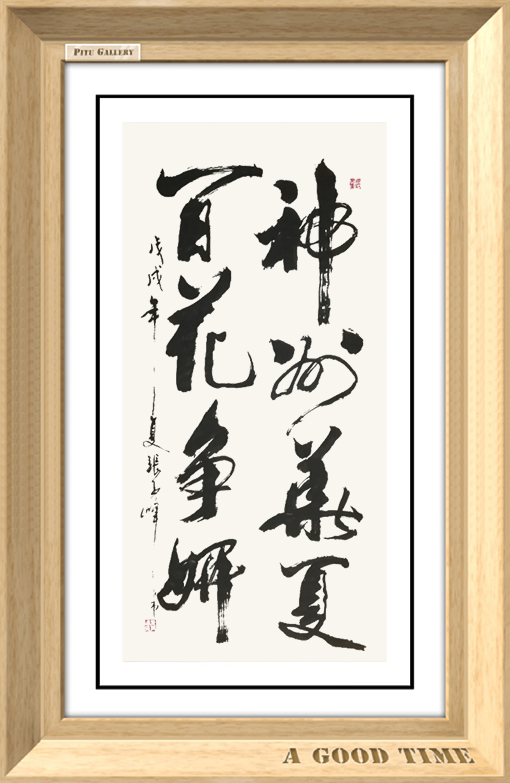 PITU GALLERY
神州華夏
百花争妍
戊戌年夏張玉峰
A GOOD TIME